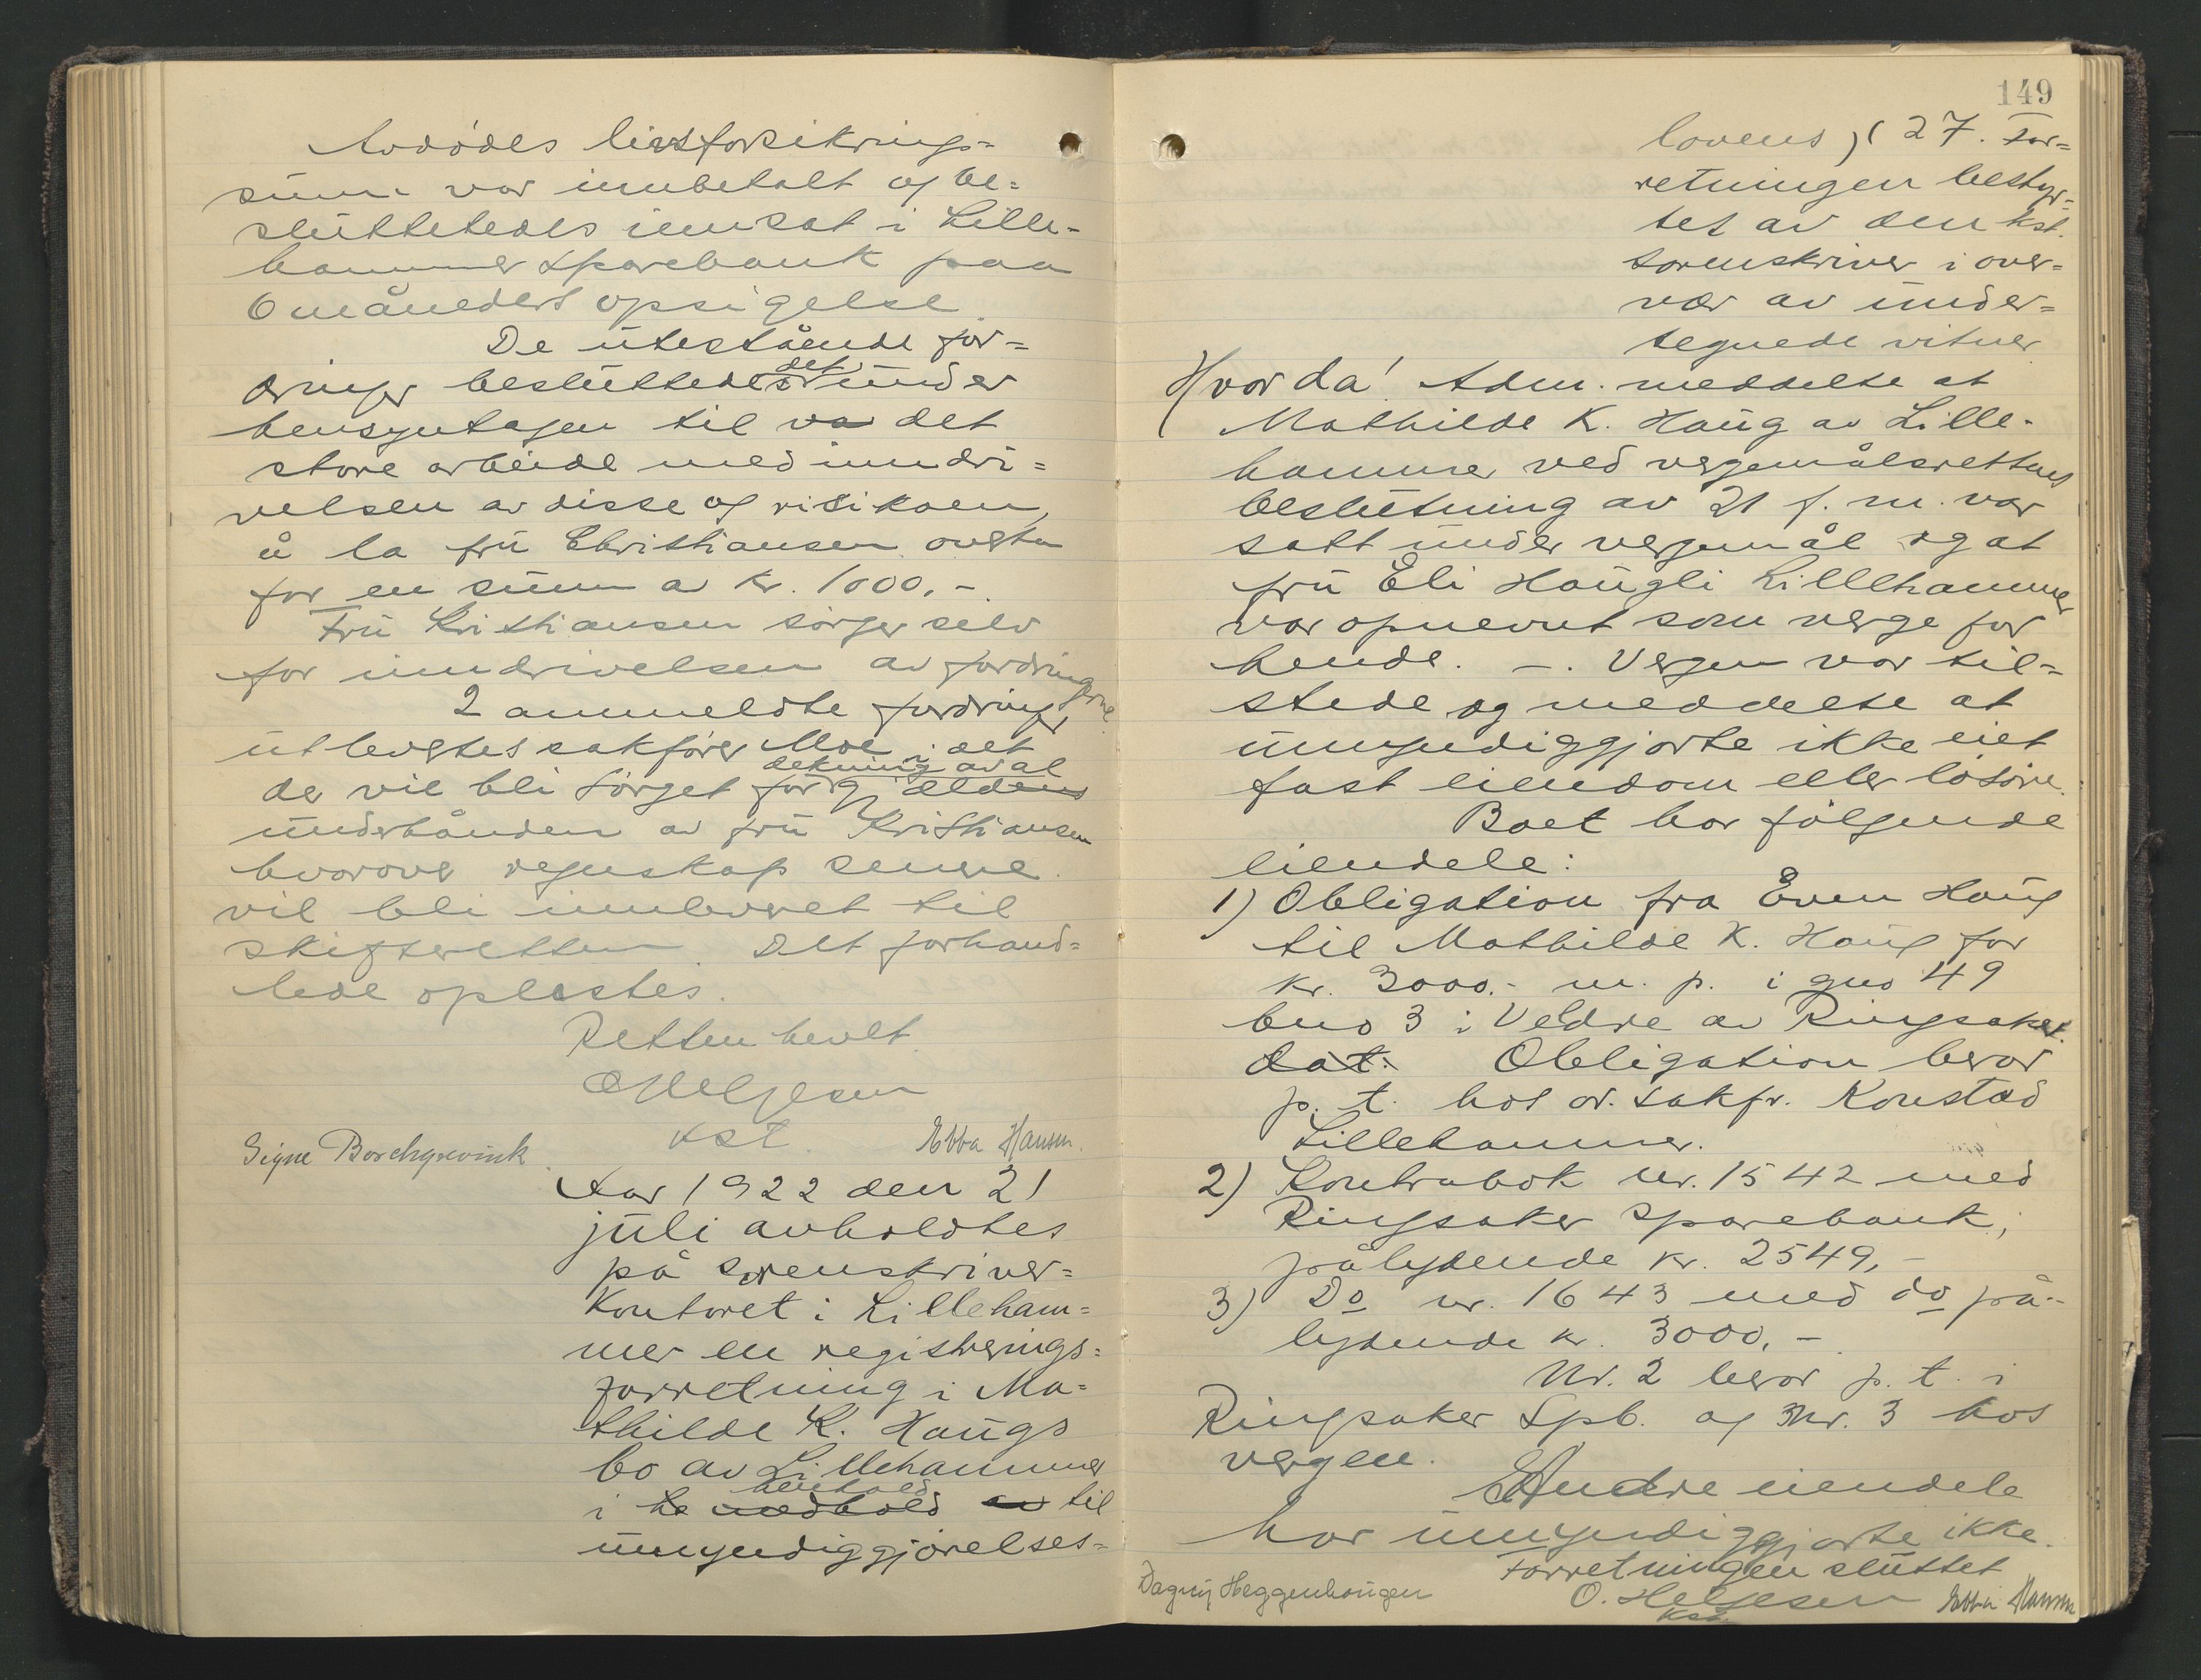 Avdødes livsforsikrings=
sum var innbetalt og be=
sluttetedes innsat i Lille-
hammer Sparebank paa
6 måneders opsigelse.
De utestående for=
dringer besluttedes det under
hensyntagen til va det
store arbeide med inndri=
velsen av disse og risikoen,
å la fru Christiansen overta
for en sum av kr. 1000,-.
Fru Kristiansen sørger selv
for inndrivelsen av fordringerne
2 anmeldte fordringer
utlevertes sakfører Moe i det
der vil bli sørget for dekning av al gjelden
underhånden av fru Kristiansen
hvorover regnskap senere
vil bli innleveret til
skifteretten. Det forhand=
lede oplæstes.
Retten hevet.
O Helgesen
kst.
Signe Borchgrevink
Ebba Hansen.
Aar 1922 den 21
juli avholdtes
på sorenskriver=
kontoret i Lilleham=
mer en registrerings=
forretning i Ma=
thilde K. Haugs
bo av Lillehammer
i he medhold av henhold til
umyndiggjørelses=
149
lovens § 27. For=
retningen bestyr=
tes av den kst.
sorenskriver i over=
vær av under=
tegnede vitner
Hvorda! Adm. meddelte at
Mathilde K. Haug av Lille-
hammer ved vergemålsrettens
beslutning av 21 f. m. var
satt under vergemål og at
fru Eli Haugli Lillehammer
var opnevnt som verge for
hende. -. Vergen var til=
stede og meddelte at
umyndiggjorte ikke eiet
fast eiendom eller løsøre.
Boet har følgende
eiendele:
1) Obligation fra Even Haug
til Mathilde K. Haug for
kr. 3000.- m. p. i gno 49
bno 3 i Veldre av Ringsaker.
dat. Obligation beror
p. t. hos or. sakfr. Konstad
Lillehammer.
2) Kontrabok nr. 1542 med
Ringsaker Sparebank,
pålydende kr. 2549,-
3) Do nr. 1643 med do på-
lydende kr. 3000,-.
Nr. 2 beror p. t. i
Ringsaker Spb. og nr. 3 hos
vergen.
Andre eiendele
har umyndiggjorte ikke.
Forretningen sluttet
Dagny Heggenhougen
O. Helgesen
kst.
Ebba Hansen